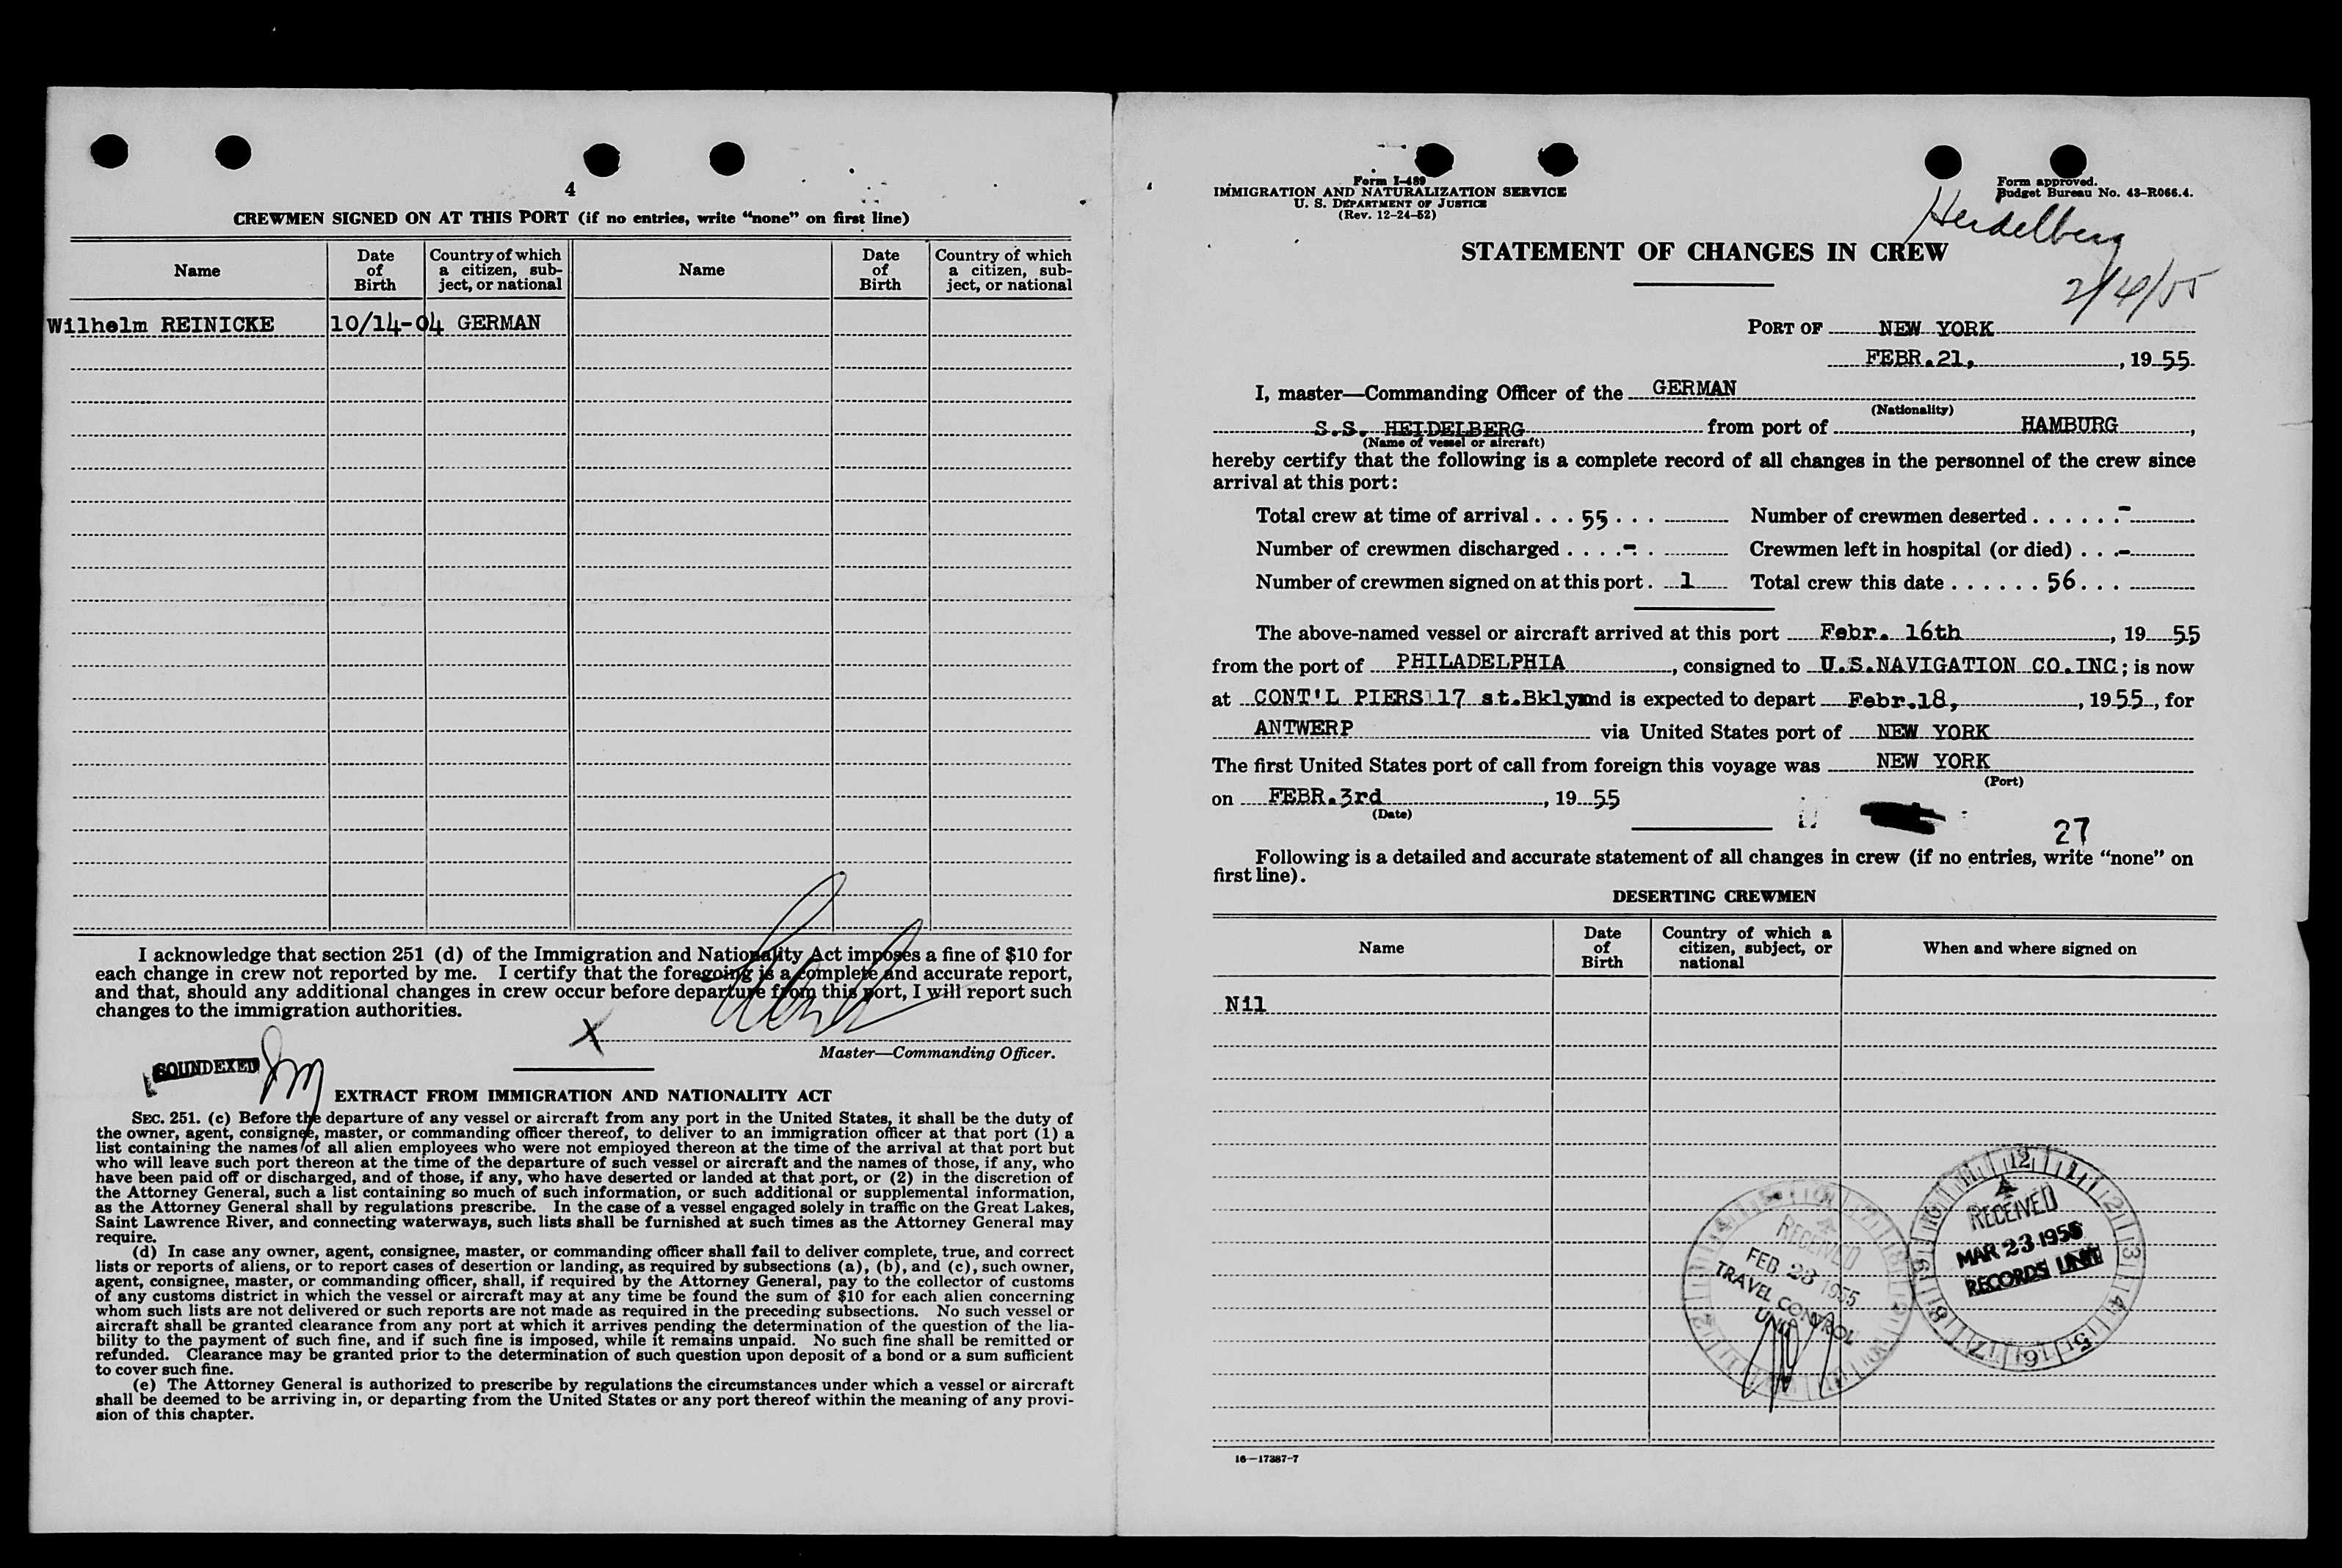 4
CREWMEN SIGNED ON AT THIS PORT (if no entries, write “none” on first line)
Name Date of Birth Country of which a citizen, sub-ject, or national Name Date of Birth Country of which a citizen, sub-ject, or national
Wilhelm REINICKE 10/14-04 GERMAN
I acknowledge that section 251 (d) of the Immigration and Nationality Act imposes a fine of $10 for
each change in crew not reported by me. I certify that the foregoing is a complete and accurate report,
and that, should any additional changes in crew occur before departure from this port, I will report such
changes to the immigration authorities.
X
Master—Commanding Officer.
SOUNDEXED
EXTRACT FROM IMMIGRATION AND NATIONALITY ACT
SEC. 251. (c) Before the departure of any vessel or aircraft from any port in the United States, it shall be the duty of
the owner, agent, consignee, master, or commanding officer thereof, to deliver to an immigration officer at that port (1) a
list containing the names of all alien employees who were not employed thereon at the time of the arrival at that port but
who will leave such port thereon at the time of the departure of such vessel or aircraft and the names of those, if any, who
have been paid off or discharged, and of those, if any, who have deserted or landed at that port, or (2) in the discretion of
the Attorney General, such a list containing so much of such information, or such additional or supplemental information,
as the Attorney General shall by regulations prescribe. In the case of a vessel engaged solely in traffic on the Great Lakes,
Saint Lawrence River, and connecting waterways, such lists shall be furnished at such times as the Attorney General may
require.
(d) In case any owner, agent, consignee, master, or commanding officer shall fail to deliver complete, true, and correct
lists or reports of aliens, or to report cases of desertion or landing, as required by subsections (a), (b), and (c), such owner,
agent, consignee, master, or commanding officer, shall, if required by the Attorney General, pay to the collector of customs
of any customs district in which the vessel or aircraft may at any time be found the sum of $10 for each alien concerning
whom such lists are not delivered or such reports are not made as required in the preceding subsections. No such vessel or
aircraft shall be granted clearance from any port at which it arrives pending the determination of the question of the lia-
bility to the payment of such fine, and if such fine is imposed, while it remains unpaid. No such fine shall be remitted or
refunded. Clearance may be granted prior to the determination of such question upon deposit of a bond or a sum sufficient
to cover such fine.
(e) The Attorney General is authorized to prescribe by regulations the circumstances under which a vessel or aircraft
shall be deemed to be arriving in, or departing from the United States or any port thereof within the meaning of any provi-
sion of this chapter.
Form I-489
IMMIGRATION AND NATURALIZATION SERVICE
U. S. DEPARTMENT OF JUSTICE
(Rev. 12-24-52)
Form approved.
Budget Bureau No. 43-R066.4.
Heidelberg
2/4/55
STATEMENT OF CHANGES IN CREW
PORT OF NEW YORK
FEBR.21, , 19 55
I, master—Commanding Officer of the GERMAN
(Nationality)
S.S. HEIDELBERG from port of HAMBURG ,
(Name of vessel or aircraft)
hereby certify that the following is a complete record of all changes in the personnel of the crew since
arrival at this port:
Total crew at time of arrival . . . 55 . . . Number of crewmen deserted . . . . . . -
Number of crewmen discharged . . . . - . Crewmen left in hospital (or died) . . . -
Number of crewmen signed on at this port . 1 Total crew this date . . . . . . 56 . . .
The above-named vessel or aircraft arrived at this port Febr. 16th , 19 55
from the port of PHILADELPHIA , consigned to U.S.NAVIGATION CO.INC ; is now
at CONT'L PIERS 17 st.Bklyn and is expected to depart Febr.18, , 1955 , for
ANTWERP via United States port of NEW YORK
The first United States port of call from foreign this voyage was NEW YORK
(Port)
on FEBR.3rd , 19 55
(Date)
27
Following is a detailed and accurate statement of all changes in crew (if no entries, write “none” on
first line).
DESERTING CREWMEN
Name Date of Birth Country of which a citizen, subject, or national When and where signed on
Nil
RECEIVED
FEB 23 1955
TRAVEL CONTROL
UNIT
RECEIVED
MAR 23 1955
RECORDS UNIT
16—17387-7